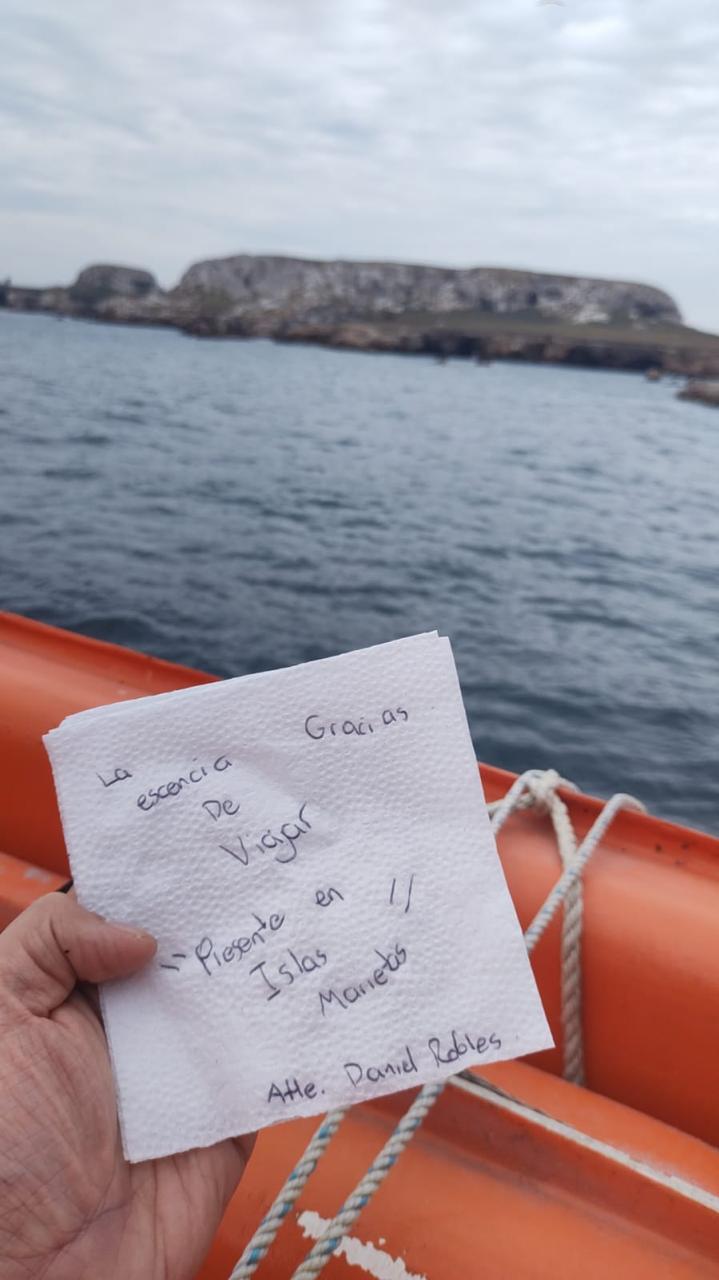 Gracias
La
escencia
De
Viajar
"Presente en "
Islas
Marietas
Atte. Daniel Robles